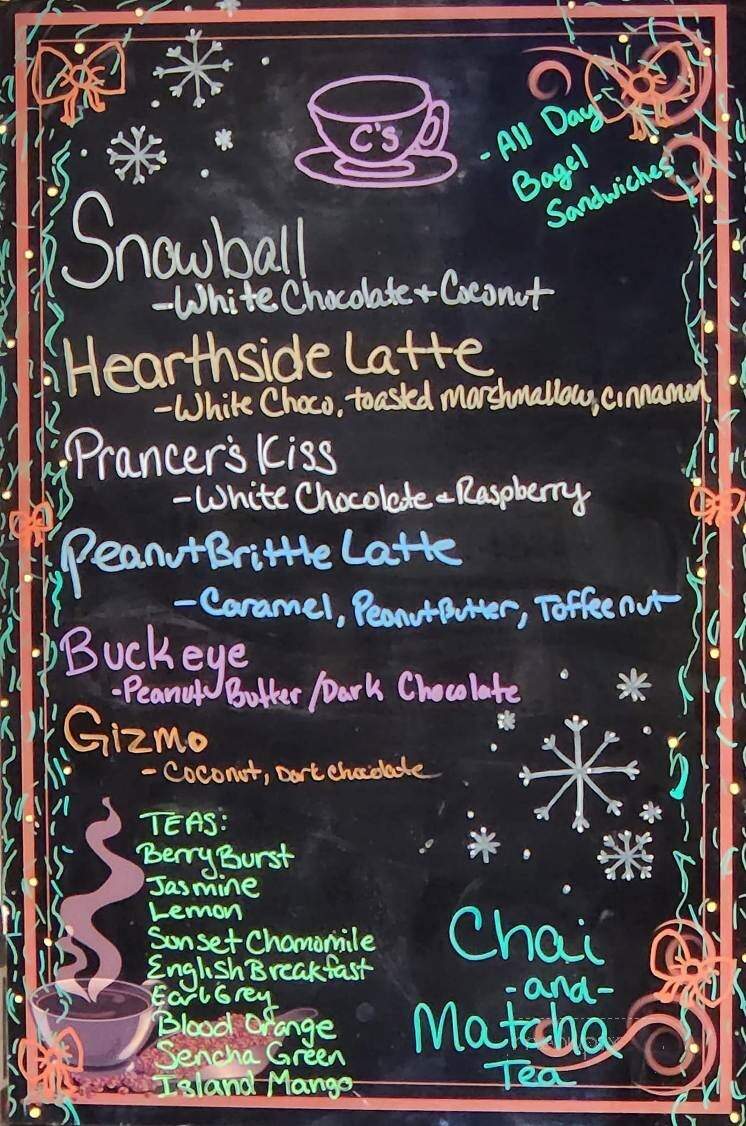 C's
- All Day
Bagel
Sandwiches
Snowball
- White Chocolate + Coconut
Hearthside Latte
- White Choco, toasted marshmallow, cinnamon
Prancer's Kiss
- White Chocolate & Raspberry
Peanut Brittle Latte
- Caramel, Peanut Butter, Toffeenut
Buckeye
- Peanut Butter / Dark Chocolate
Gizmo
- Coconut, Dark chocolate
TEAS:
Berry Burst
Jasmine
Lemon
Sunset Chamomile
English Breakfast
Earl Grey
Blood Orange
Sencha Green
Island Mango
Chai
- and -
Matcha
Tea